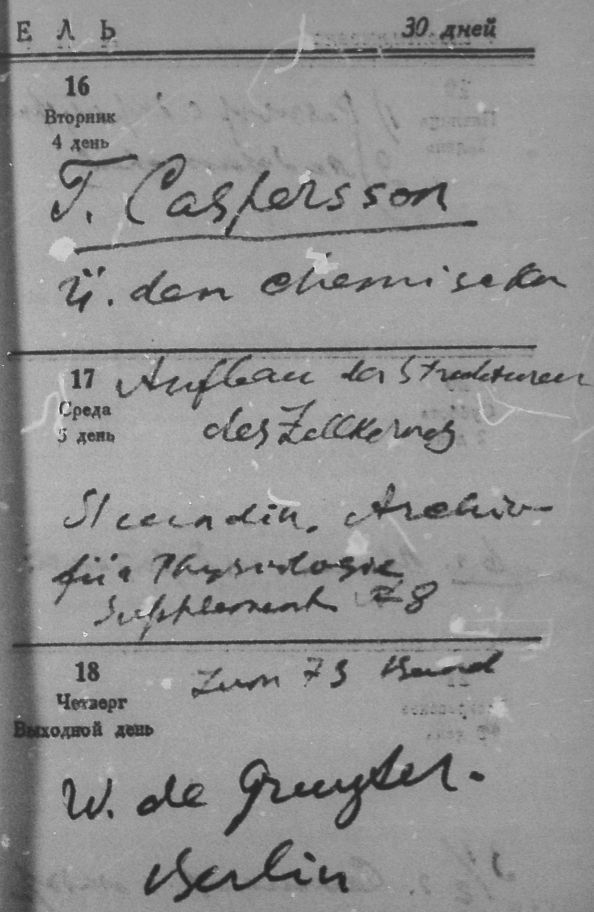 Е Л Ь 30 дней
16
Вторник
4 день
T. Caspersson
Ü. den chemischen
17 Aufbau der Strukturen
Среда
5 день
des Zellkernes
Skandin. Archiv
für Physiologie
Supplement 8
18
Четверг
Выходной день
Zum 73 Band
W. de Gruyter.
Berlin